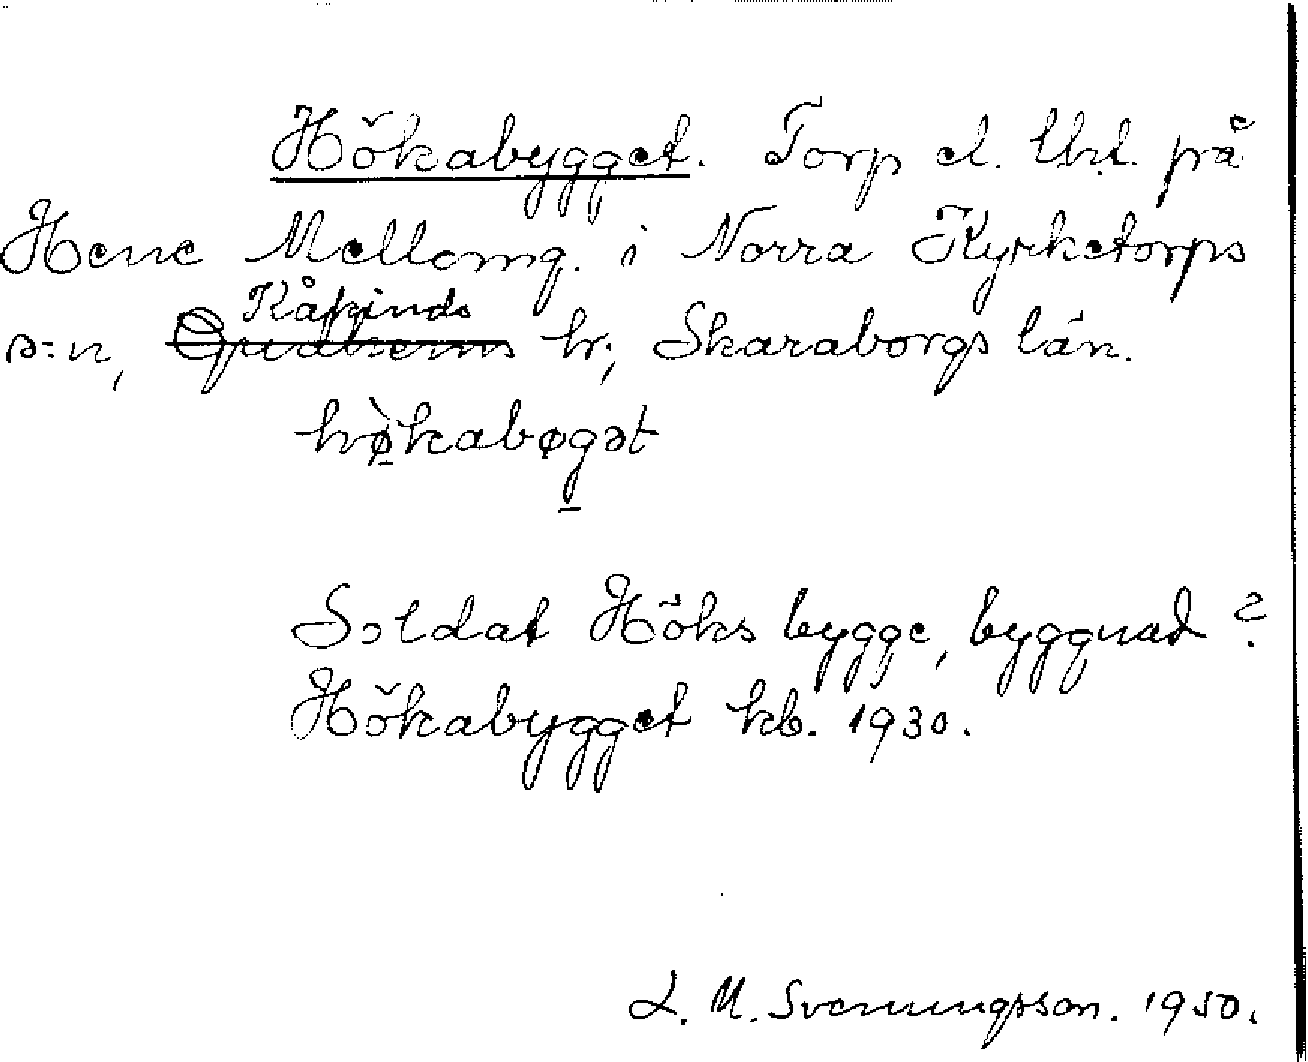 Hökabygget. Torp el. lht. på
Hene Mellomg. i Norra Kyrketorps
Kåkinds
s:n, Gudhems hr; Skaraborgs län.
hø̀kabøgət
Soldat Höks bygge, byggnad?
Hökabygget kb. 1930.
L. M. Svenungsson. 1950.